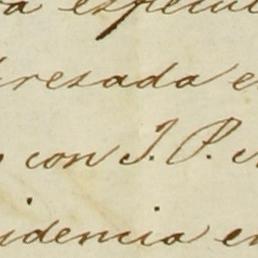 a especul
resada e
con J. P.
idencia en